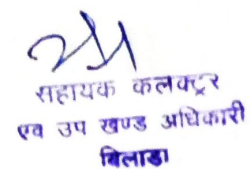 सहायक कलक्टर
एव उप खण्ड अधिकारी
बिलाडा